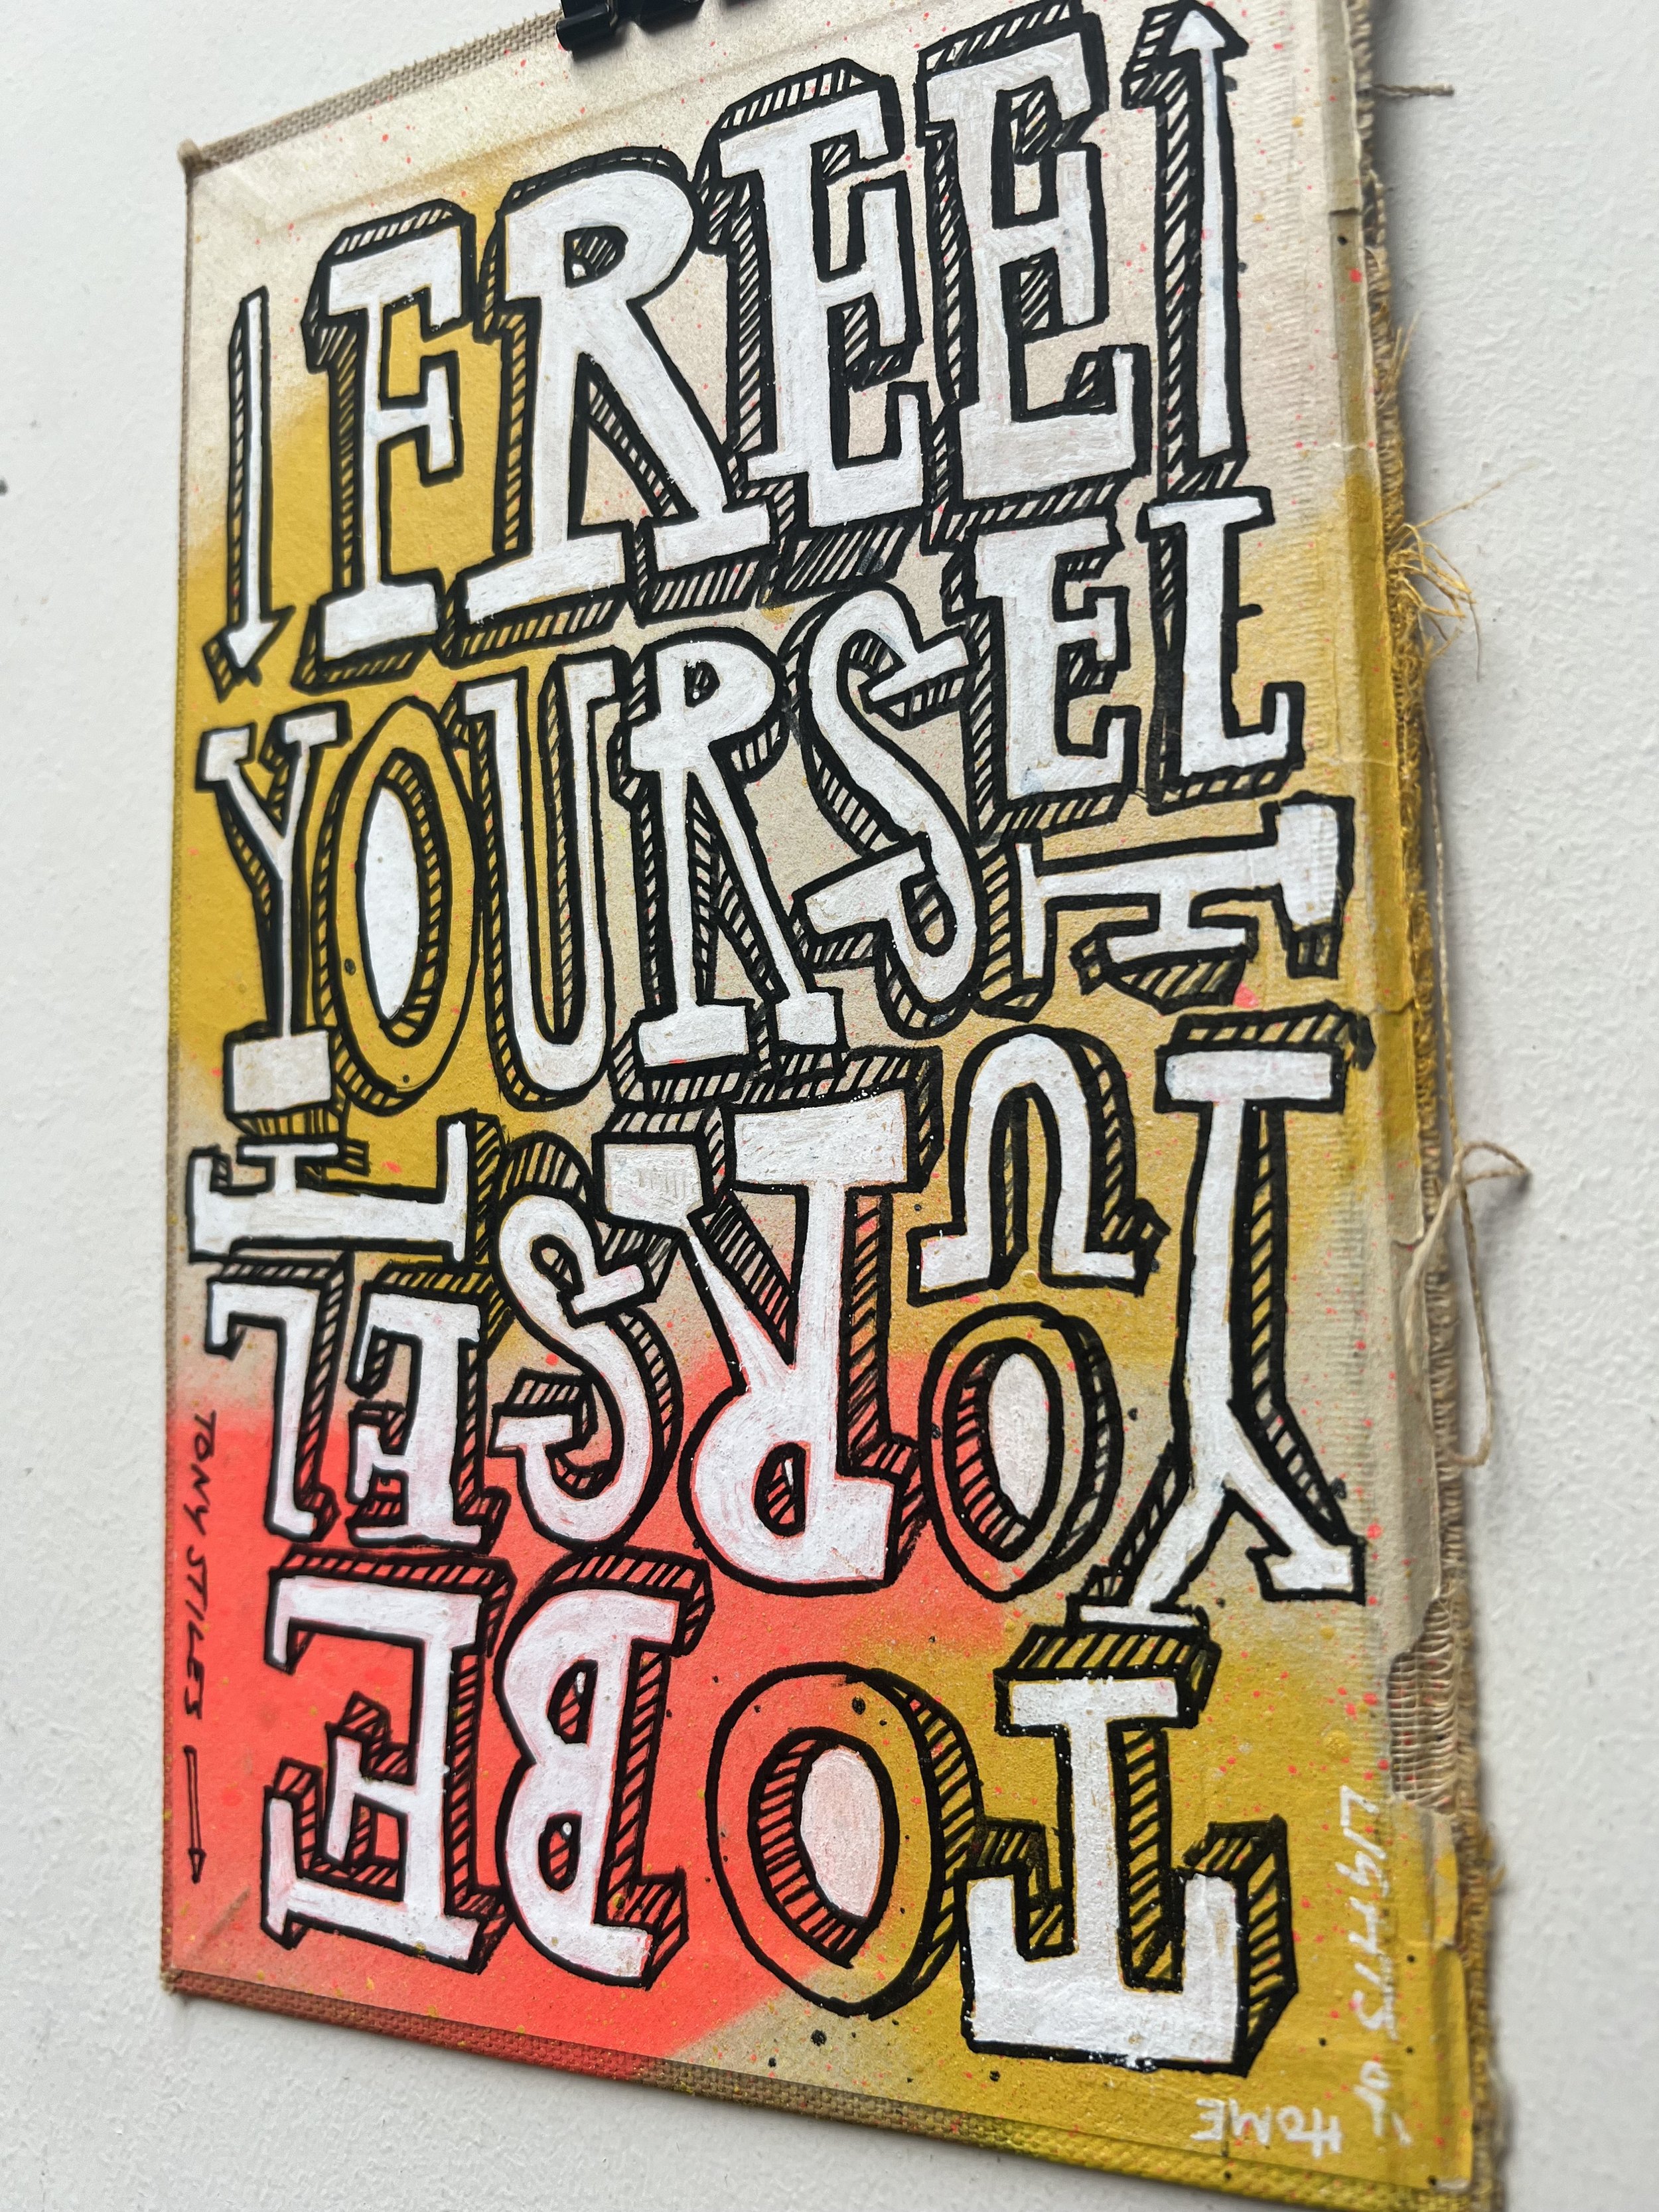 FREE
YOURSELF
TO BE
YOURSELF
TONY STILES
LIGHTS
HOME